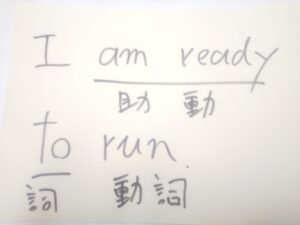 I am ready
助 動
to run.
詞 動詞